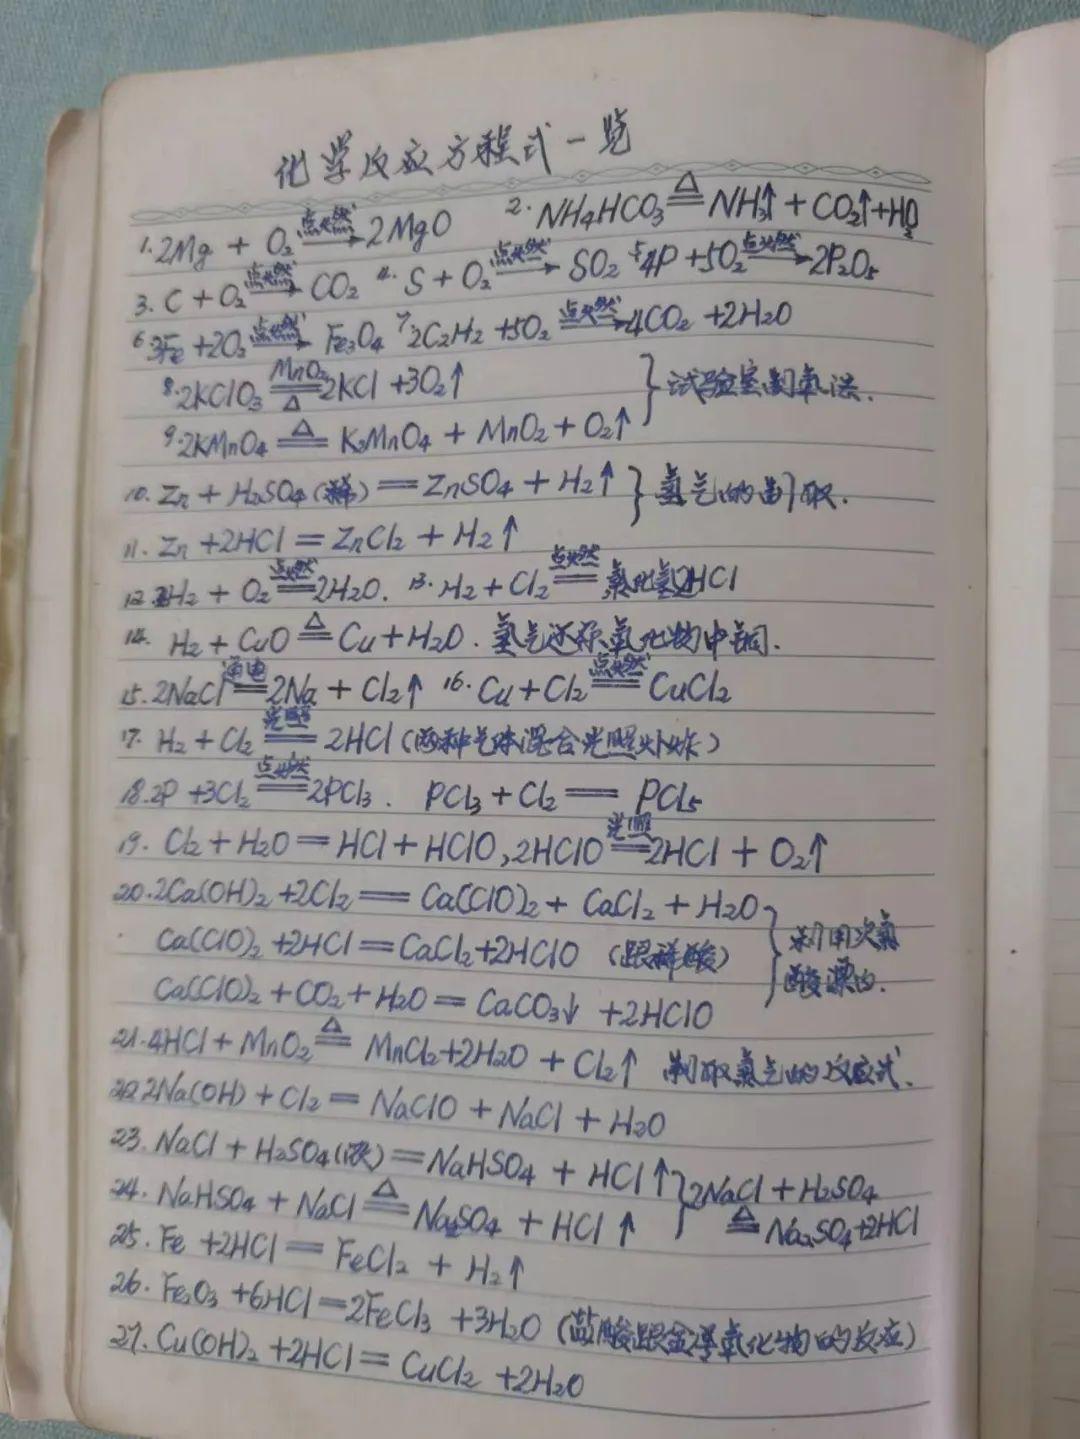 化学反应方程式一览
1. 2Mg + O₂ 点燃→ 2MgO 2. NH₄HCO₃ △═ NH₃↑ + CO₂↑ + H₂O
3. C + O₂ 点燃→ CO₂ 4. S + O₂ 点燃→ SO₂ 5. 4P + 5O₂ 点燃→ 2P₂O₅
6. 3Fe + 2O₂ 点燃→ Fe₃O₄ 7. 2C₂H₂ + 5O₂ 点燃→ 4CO₂ + 2H₂O
8. 2KClO₃ MnO₂═△ 2KCl + 3O₂↑ } 试验室制氧法.
9. 2KMnO₄ △═ K₂MnO₄ + MnO₂ + O₂↑
10. Zn + H₂SO₄(稀) = ZnSO₄ + H₂↑ } 氢气的制取.
11. Zn + 2HCl = ZnCl₂ + H₂↑
12. 2H₂ + O₂ 点燃═ 2H₂O. 13. H₂ + Cl₂ 点燃═ 氯化氢2HCl
14. H₂ + CuO △═ Cu + H₂O. 氢气还原氧化物中铜.
15. 2NaCl 通电═ 2Na + Cl₂↑ 16. Cu + Cl₂ 点燃═ CuCl₂
17. H₂ + Cl₂ 光照═ 2HCl (两种气体混合光照爆炸)
18. 2P + 3Cl₂ 点燃═ 2PCl₃. PCl₃ + Cl₂ = PCl₅
19. Cl₂ + H₂O = HCl + HClO, 2HClO 光照═ 2HCl + O₂↑
20. 2Ca(OH)₂ + 2Cl₂ = Ca(ClO)₂ + CaCl₂ + H₂O
Ca(ClO)₂ + 2HCl = CaCl₂ + 2HClO (跟稀酸) } 利用次氯
Ca(ClO)₂ + CO₂ + H₂O = CaCO₃↓ + 2HClO 酸漂白.
21. 4HCl + MnO₂ △═ MnCl₂ + 2H₂O + Cl₂↑ 制取氯气的反应式.
22. 2Na(OH) + Cl₂ = NaClO + NaCl + H₂O
23. NaCl + H₂SO₄(浓) = NaHSO₄ + HCl↑ } 2NaCl + H₂SO₄
24. NaHSO₄ + NaCl △═ Na₂SO₄ + HCl↑ △═ Na₂SO₄ + 2HCl
25. Fe + 2HCl = FeCl₂ + H₂↑
26. Fe₂O₃ + 6HCl = 2FeCl₃ + 3H₂O (盐酸跟金属氧化物的反应)
27. Cu(OH)₂ + 2HCl = CuCl₂ + 2H₂O